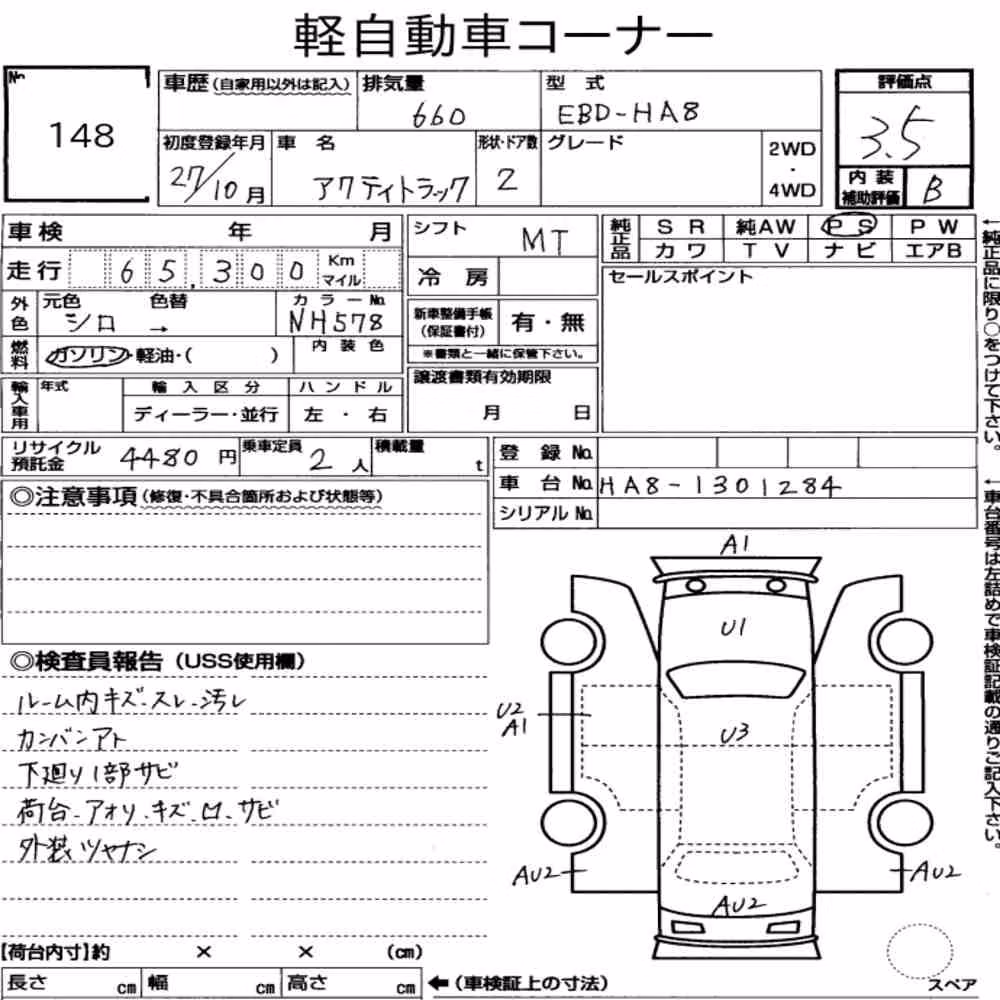 軽自動車コーナー
No.
148
車歴(自家用以外は記入) 排気量 660
型式 EBD-HA8
評価点 3.5
内装補助評価 B
初度登録年月 27/10月
車名 アクティトラック
形状・ドア数 2
グレード
2WD・4WD
車検 年 月
走行 65,300 Km マイル
シフト MT
冷房
純正品 SR 純AW PS PW
カワ TV ナビ エアB
セールスポイント
外色 元色 シロ → 色替
カラーNo. NH578
燃料 ガソリン・軽油・( )
内装色
新車整備手帳(保証書付) 有・無
※書類と一緒に保管下さい。
譲渡書類有効期限
月 日
輸入車用 年式 輸入区分 ハンドル
ディーラー・並行 左・右
リサイクル預託金 4480円
乗車定員 2人
積載量 t
登録No.
車台No. HA8-1301284
シリアルNo.
←純正品に限り○をつけて下さい。
←車台番号は左詰めで車検証記載の通りご記入下さい。
◎注意事項(修復・不具合箇所および状態等)
◎検査員報告(USS使用欄)
ルーム内キズ・スレ・汚レ
カンバンアト
下廻り1部サビ
荷台・アオリ・キズ・凹・サビ
外装ツヤナシ
A1
U1
U2
A1
U3
AU2
AU2
AU2
【荷台内寸】約 × × (cm)
長さ cm 幅 cm 高さ cm ←(車検証上の寸法)
スペア